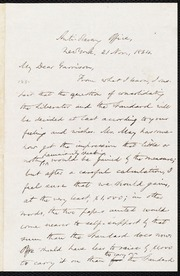 Anti-Slavery Office,
New York, 21 Nov., 1864.
My Dear Garrison:
From what I learn, I sus-
pect that the question of consolidating
the Liberator and the Standard will
be decided at last according to your
feeling and wishes. Mr. May has some-
how got the impression that little or
nothing would be gained by the measure;
but after a careful calculation, I
feel sure that we should gain,
at the very least, $1,000; in other
words, the two papers united would
come nearer to self-support by that
sum than the Standard does now.
We should have less to raise by $1,000
to carry it on than for the Standard